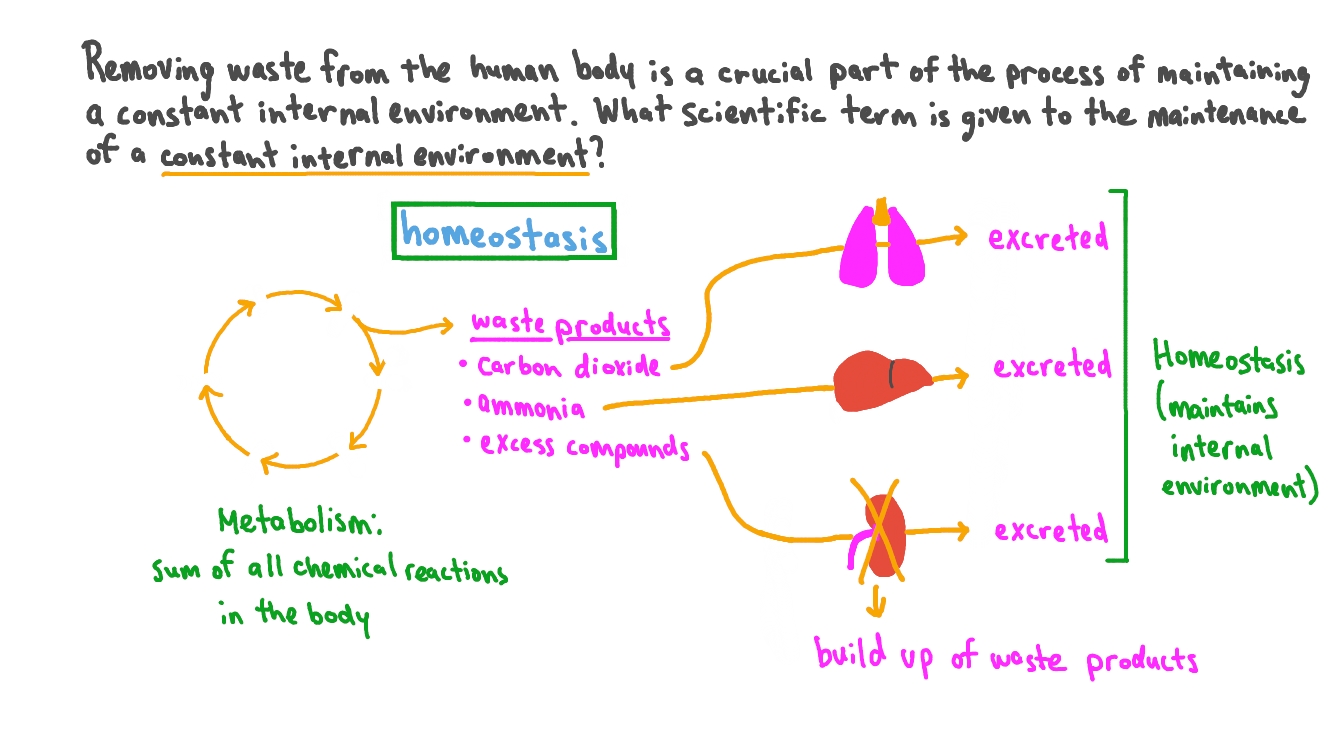 Removing waste from the human body is a crucial part of the process of maintaining
a constant internal environment. What scientific term is given to the maintenance
of a constant internal environment?
homeostasis
excreted
waste products
• Carbon dioxide
• ammonia
• excess compounds
excreted
excreted
Homeostasis
(maintains
internal
environment)
Metabolism:
sum of all chemical reactions
in the body
build up of waste products